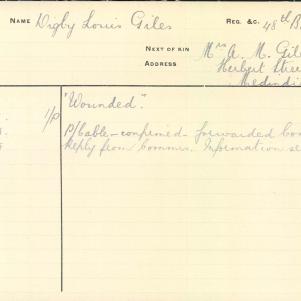 NAME Digby Louis Giles REG. &C. 48th B
NEXT OF KIN Mrs A. M. Gil
ADDRESS Herbert Stree
1/P "Wounded".
P/Cable - confirmed - forwarded
Reply from Commrs. Information se